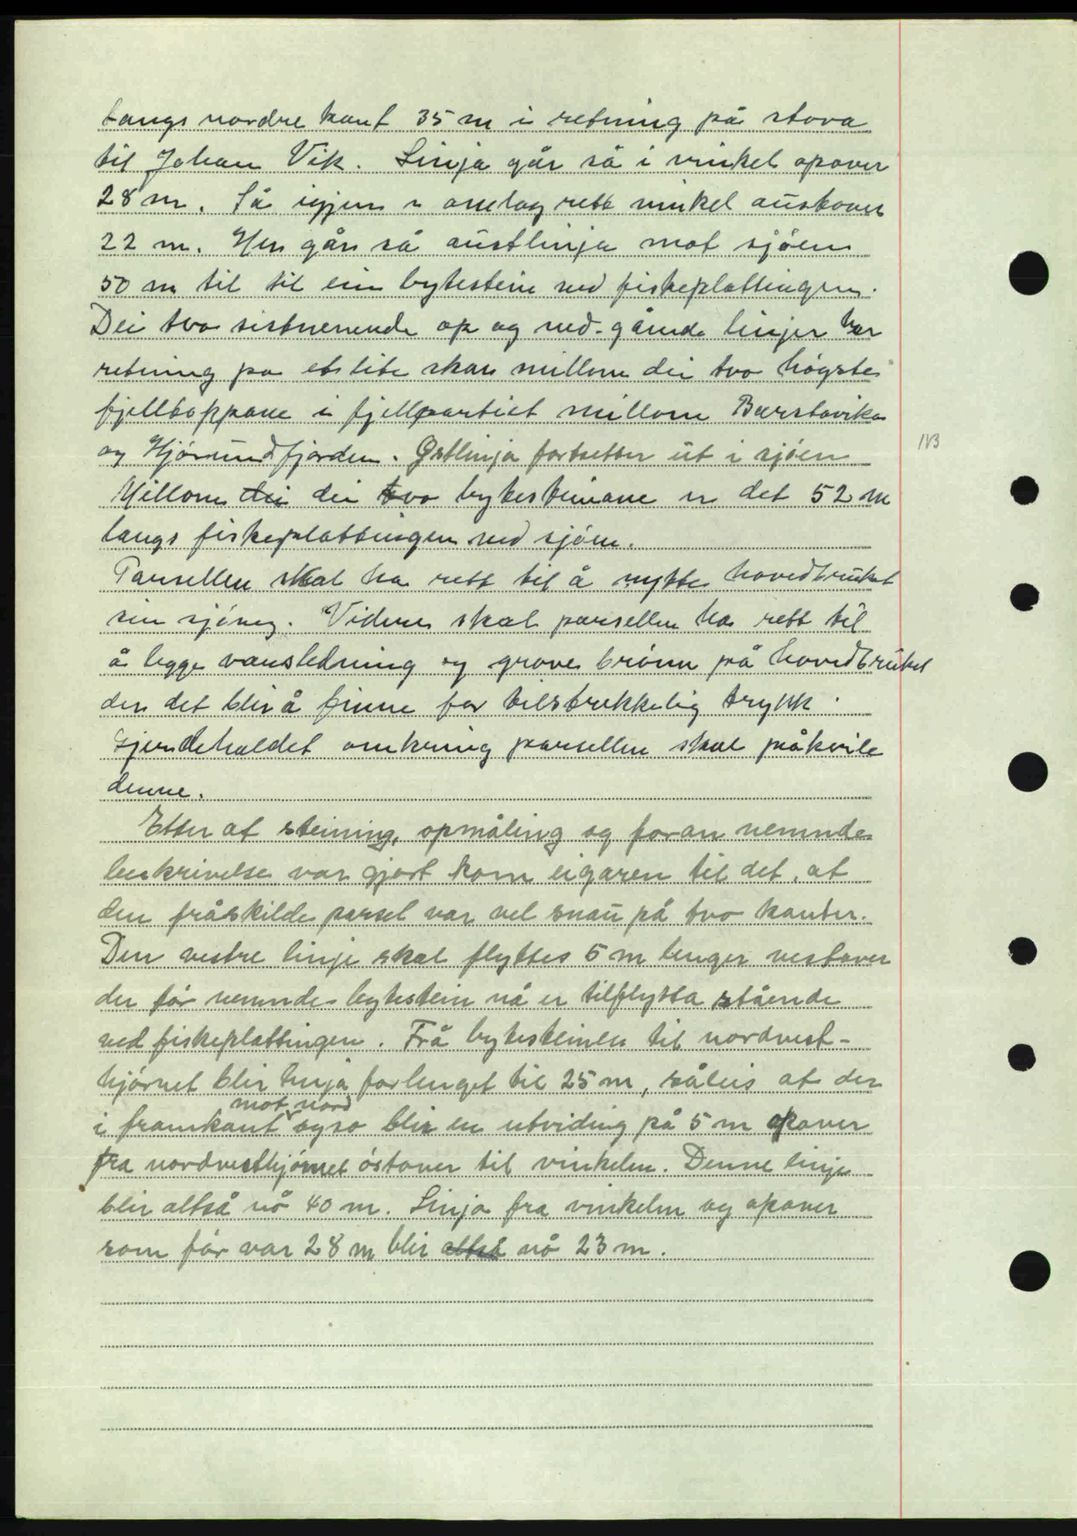 langs nordre kant 35 m i retning på stova
til Johan Vik. Linja går så i vinkel opover
28 m. Så igjen i omlag rett vinkel austover
22 m. Her går så austlinja mot sjøen
50 m til til ein bytestein ved fiskeplattingen.
Dei two sistnemnde op og ned-gåande linjer har
retning på et lite skar millom dei two högste
fjelltoppane i fjellpartiet millom Barstavika
og Hjörundfjorden. Östlinja fortsetter ut i sjöen
Millom dei dei two bytesteinane er det 52 m
langs fiskeplattingen ved sjöen.
Parsellen skal ha rett til å nytte hovedbruket
sin sjöveg. Videre skal parsellen ha rett til
å legge vassledning og grave brönn på hovedbruket
der det blir å finne for tilstrekkelig trykk.
Gjerdehaldet omkring parsellen skal påkvile
denne.
Etter at steining, opmåling og foran nemnde
beskrivelse var gjort kom eigaren til det, at
den fråskilde parsel var vel snau på two kanter.
Den vestre linje skal flyttes 5 m lenger vestover
der för nemnde bytestein nå er tilflytta stående
ved fiskeplattingen. Frå bytesteinen til nordvest-
hjörnet blir linja forlenget til 25 m, såleis at der
mot nord
i framkant også blir en utviding på 5 m opover
fra nordvesthjörnet östover til vinkelen. Denne linje
blir altså nå 40 m. Linja fra vinkelen og opover
som för var 28 m blir altså nå 23 m.
1V3